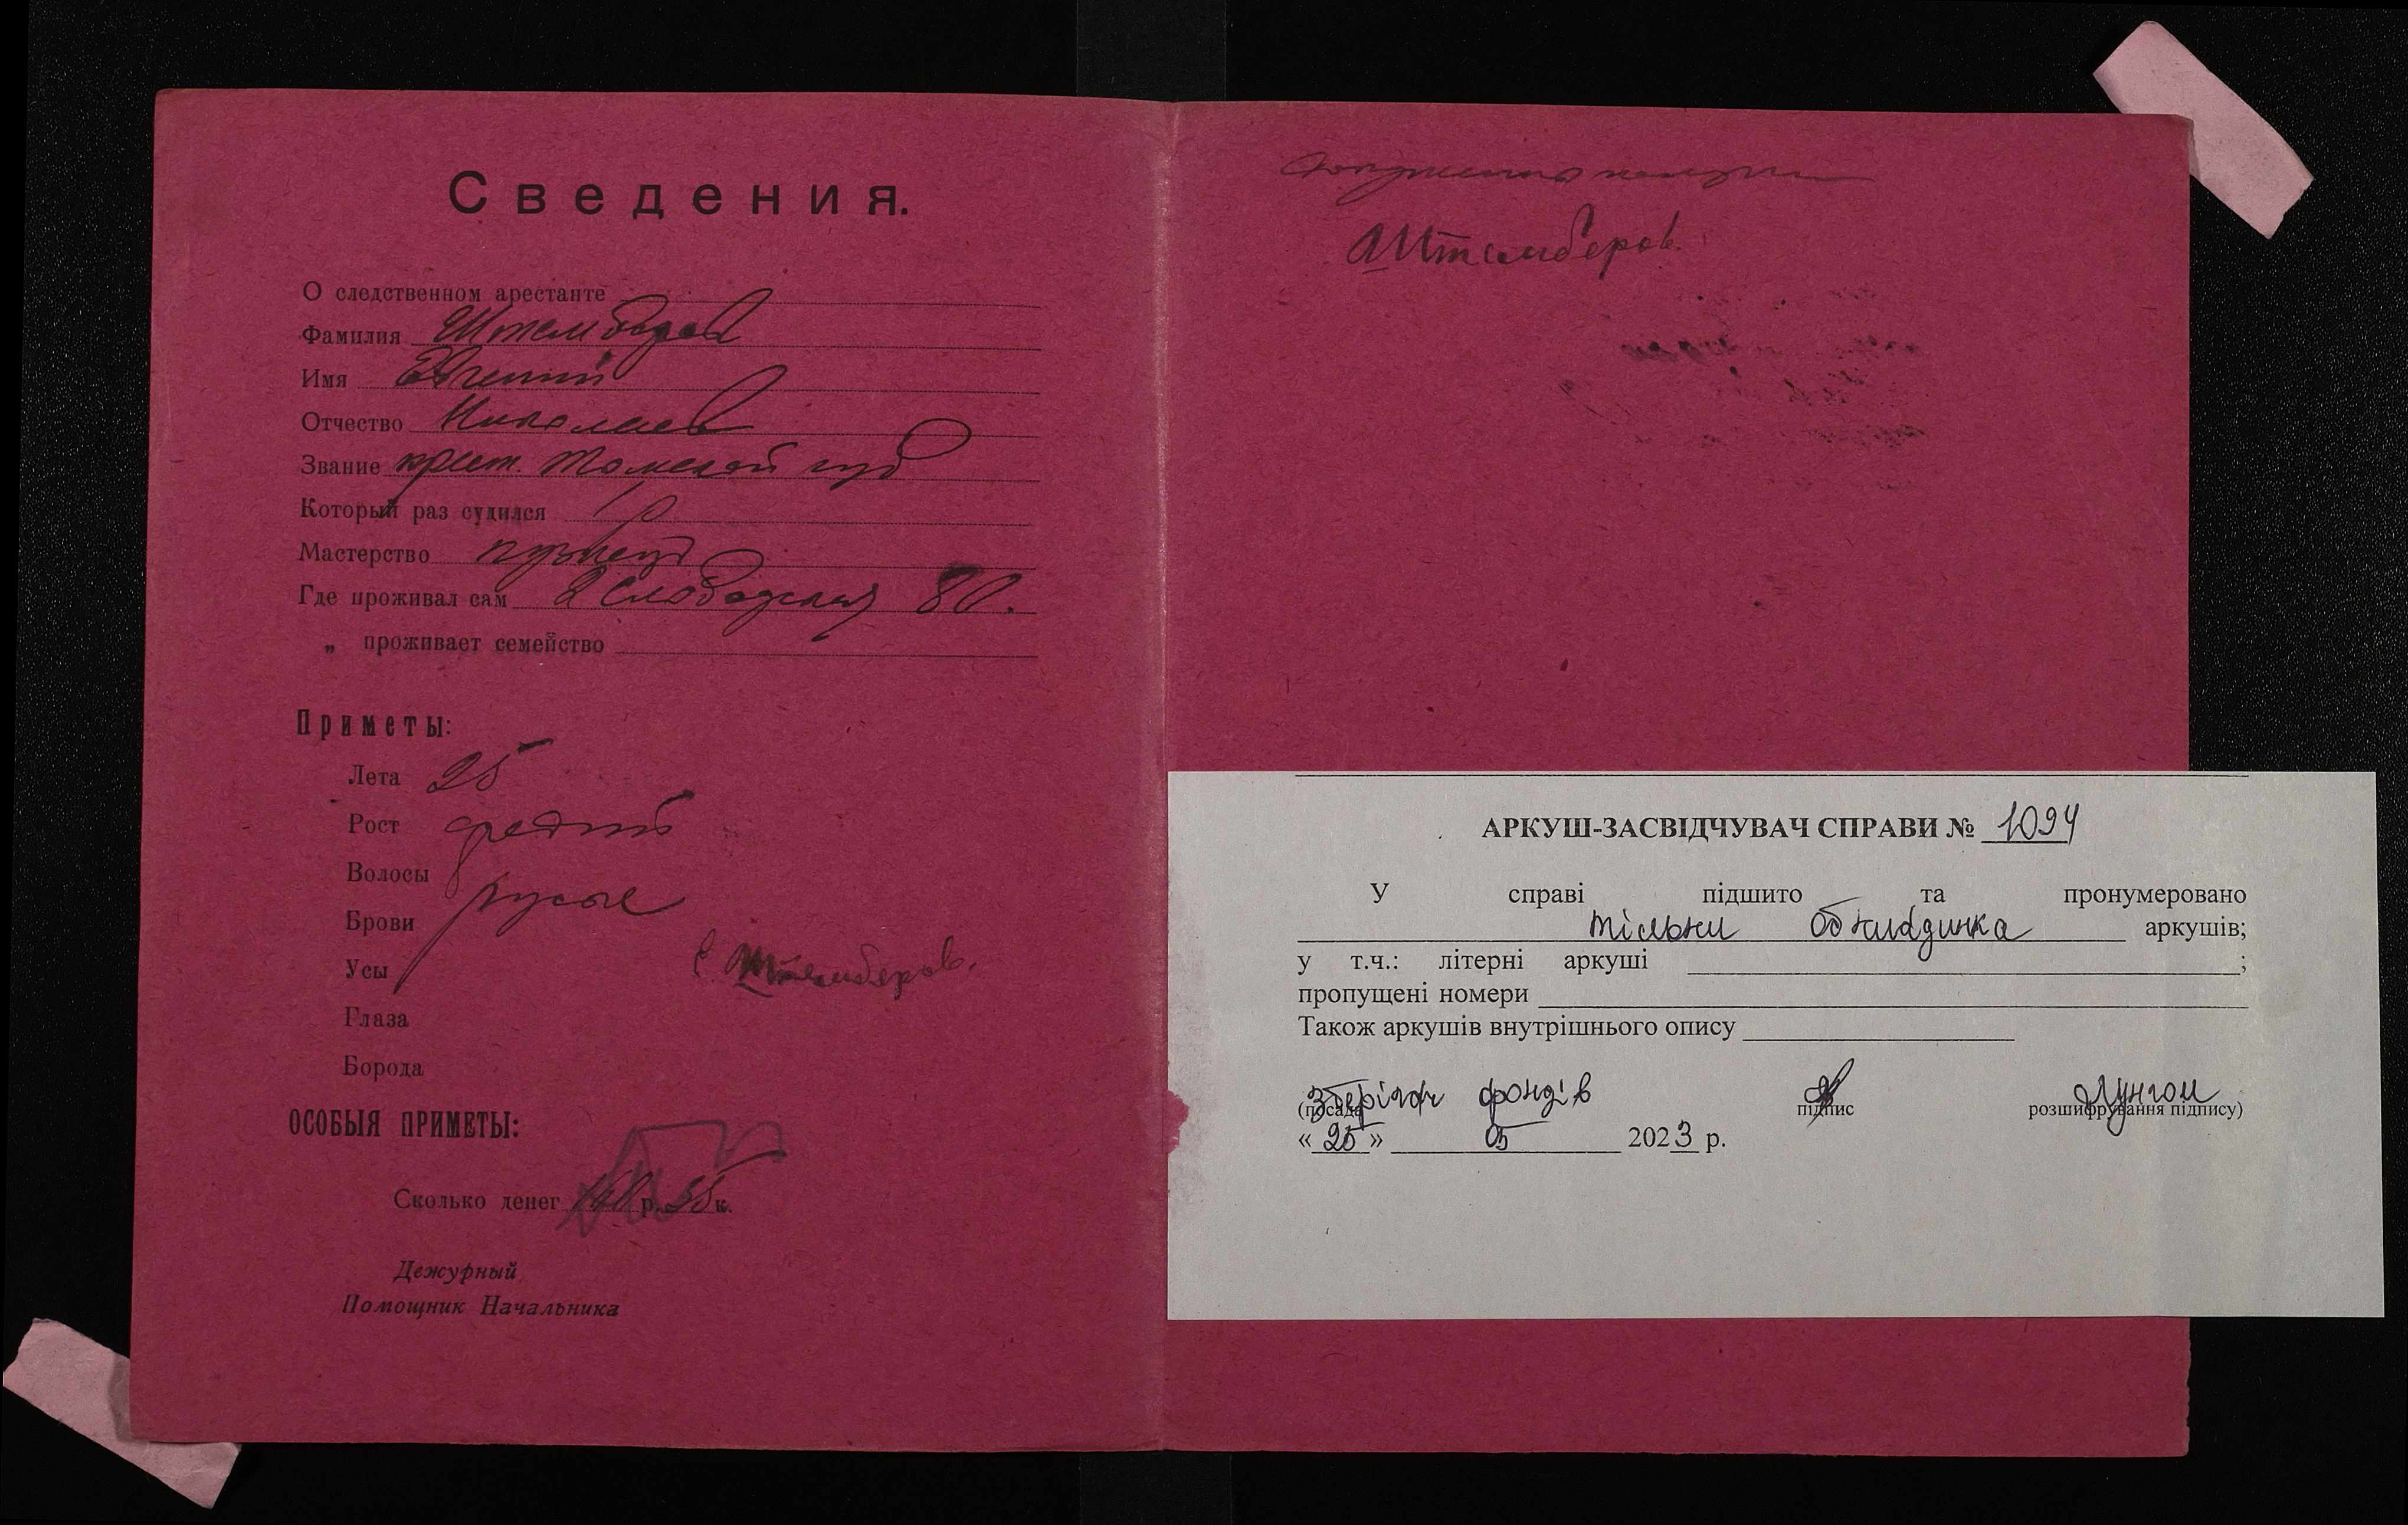 Сведения.
О следственном арестанте
Фамилия Штемберов
Имя Евгений
Отчество Николаев
Звание крест. Томской губ
Который раз судился 1 р
Мастерство кузнец
Где проживал сам 2 Слободская 80.
„ проживает семейство
Приметы:
Лета 25
Рост средний
Волосы
Брови русые
Усы
Е Штемберов.
Глаза
Борода
ОСОБЫЯ ПРИМЕТЫ:
Сколько денег р. 55 к.
Дежурный
Помощник Начальника
Документы получил
Штемберов.
АРКУШ-ЗАСВІДЧУВАЧ СПРАВИ № 1094
У справі підшито та пронумеровано
тільки обкладинка аркушів;
у т.ч.: літерні аркуші ;
пропущені номери
Також аркушів внутрішнього опису
Зберігач фондів
(посада підпис розшифрування підпису)
« 25 » 05 2023 р.